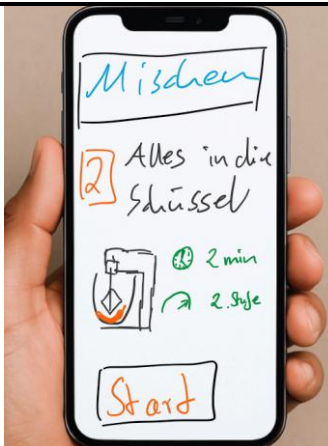 Mischen
2 Alles in die
Schüssel
2 min
2. Stufe
Start